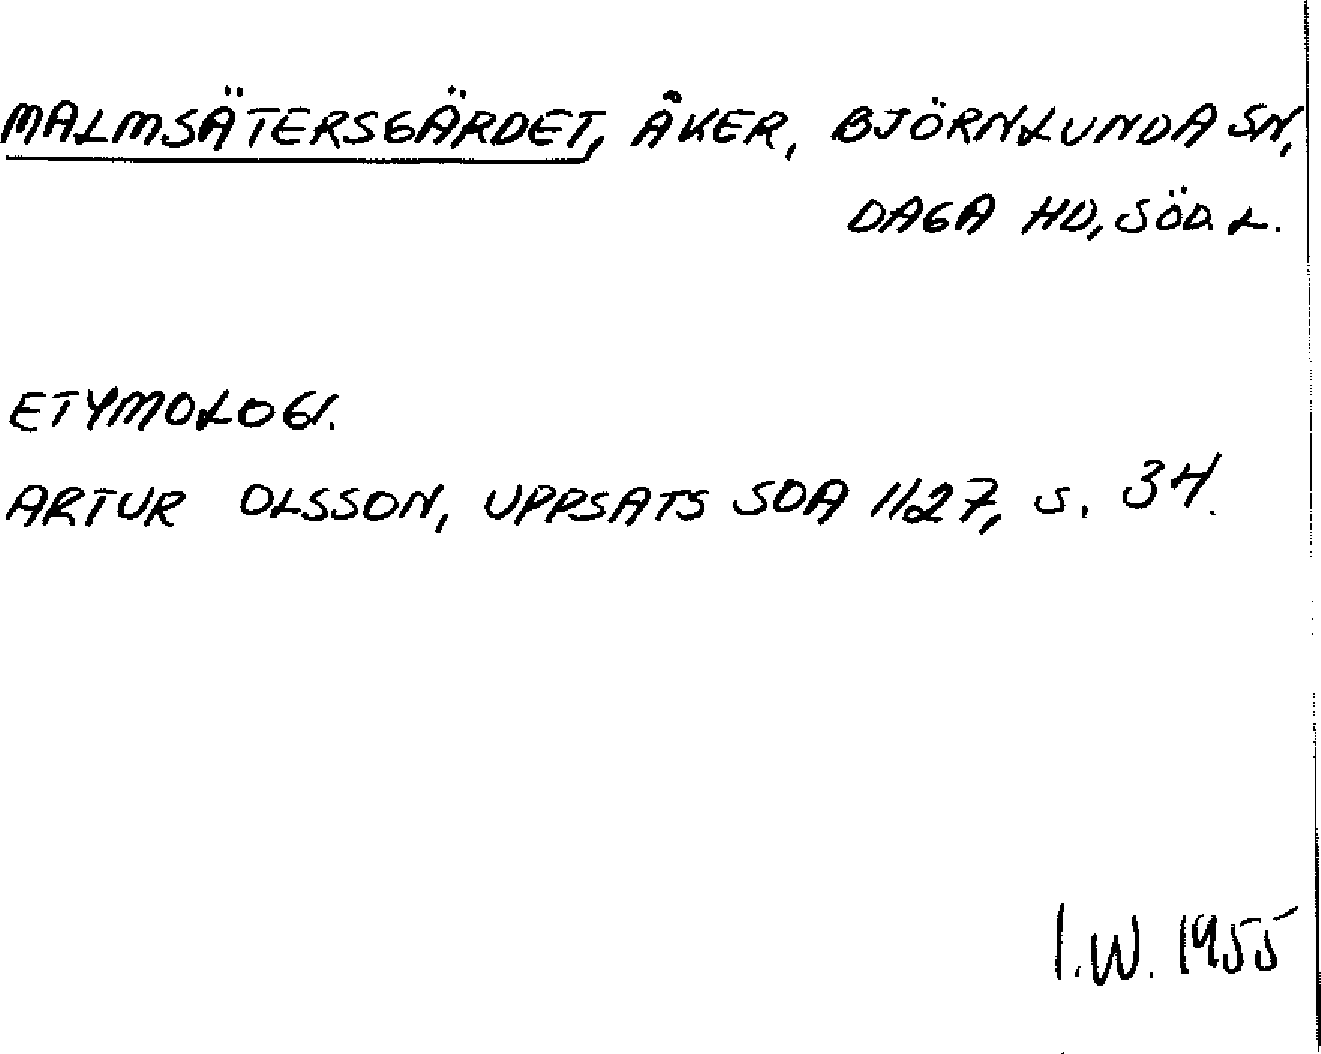 MALMSÄTERSGÄRDET, ÅKER, BJÖRNLUNDA SN,
DAGA HD, SÖD. L.
ETYMOLOGI.
ARTUR OLSSON, UPPSATS SOA 1127, S. 34.
I.W. 1955